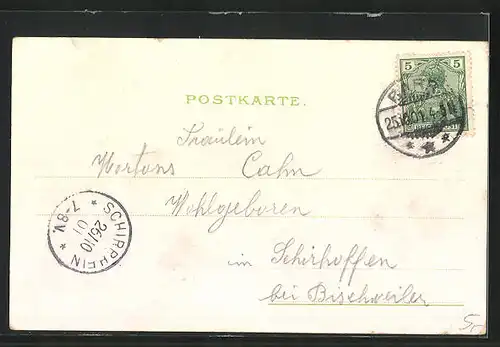 POSTKARTE.
5 5
25.10.01. 4-5N
Fräulein
Hortons Cahn
Wohlgeboren
im Schirhoffen
bei Bischweiler
SCHIRRHEIN
26/10
01
* 7-8V. *
5,-